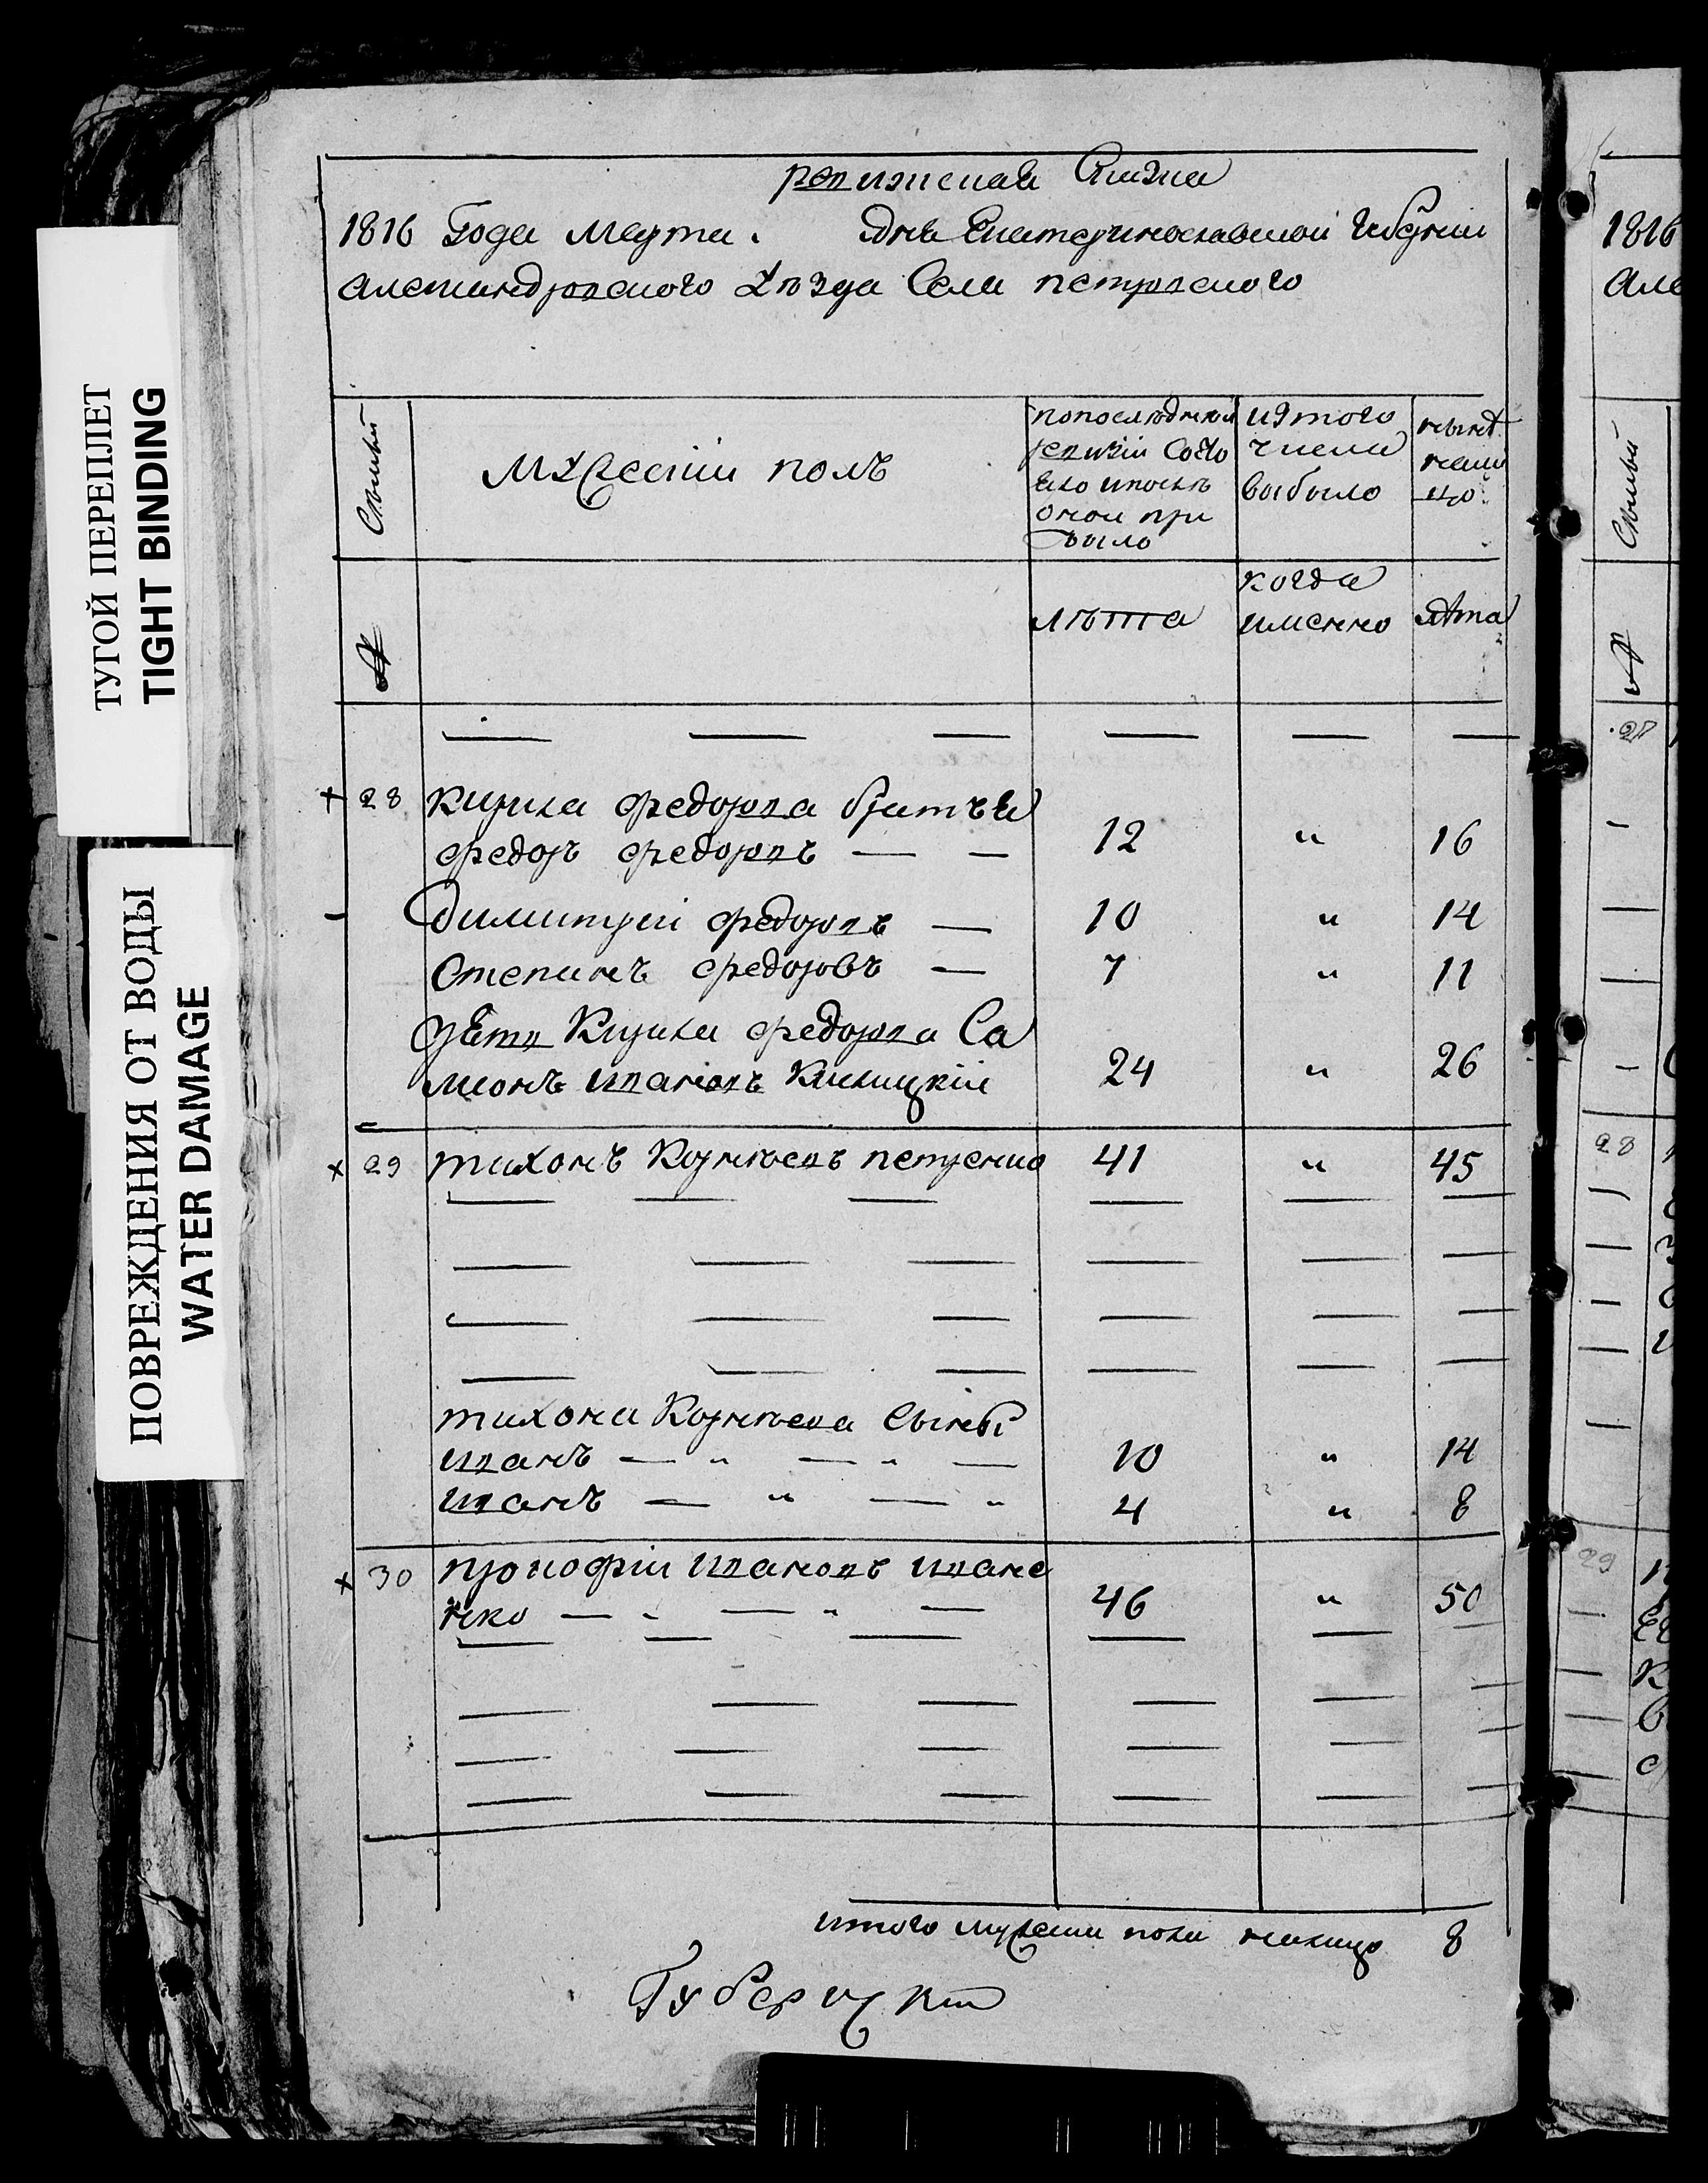 ТУГОЙ ПЕРЕПЛЕТ
TIGHT BINDING
ПОВРЕЖДЕНИЯ ОТ ВОДЫ
WATER DAMAGE
ревижская Скаска
1816 Года Марта . дня Екатеринославской Губернии
александровского уезда Села петровского
Семьи
мужескии полъ
попоследней
ревизии состо
яло ипосле
оной при
было
изтого
числа
выбыло
ныне
нали
цо
№
лѣта
когда
именно
лѣта
28 кирила федорова братья
федоръ федоровъ — — 12 " 16
димитрий федоровъ — 10 " 14
Степанъ федоровъ — 7 " 11
зять Кирила федорова Са
мионъ ивановъ 24 " 26
29 тихонъ Корнѣевъ петренко 41 " 45
тихона Корнѣева сыны
иванъ — " — " — 10 " 14
иванъ — " — " 4 " 8
30 прокофии ивановъ иване
нко — " — " — 46 " 50
итого мужеска пола налицо 8
1816
але
Семьи
№
28
29